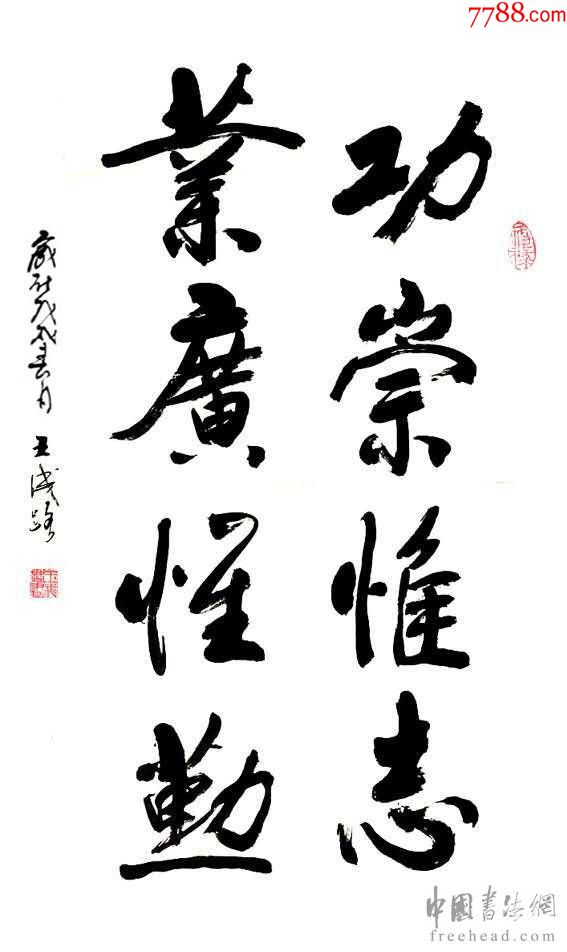 7788.com
功崇惟志
業廣惟勤
歲在戊戌春月 王成路
中國書法網
freehead.com